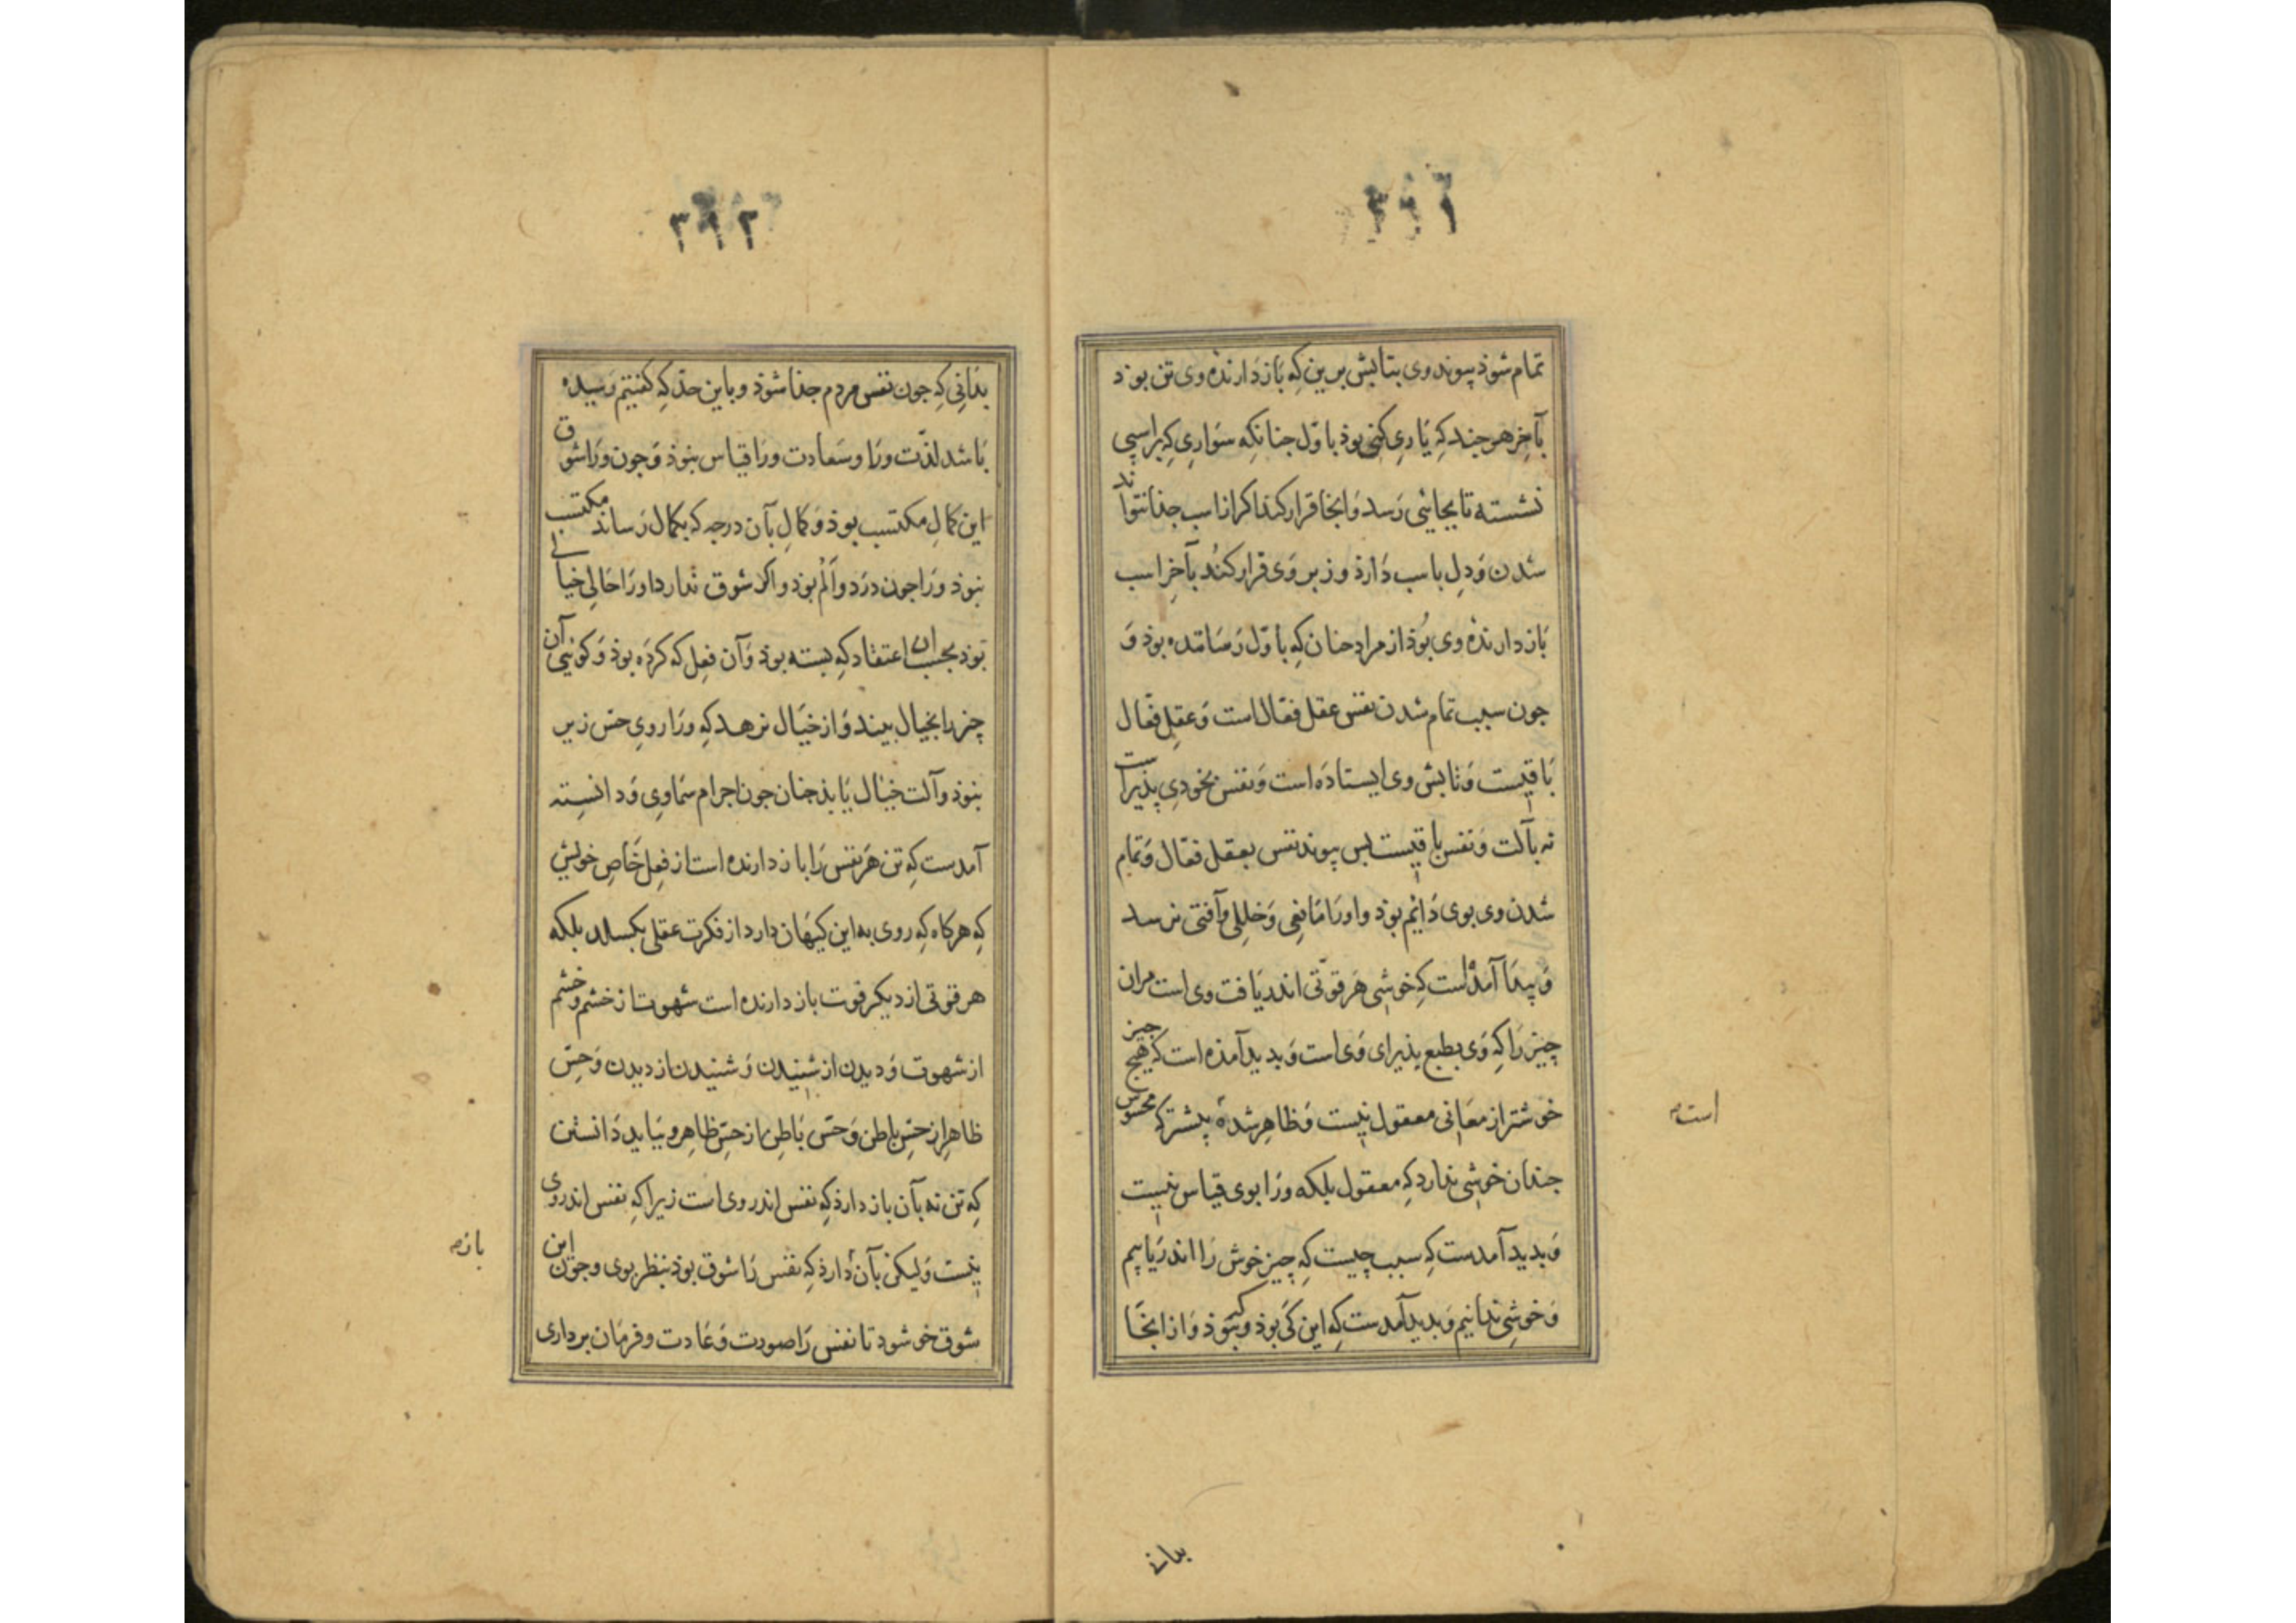 ۳۱۱
تمام شوذ پیوند وی بتابش برین که باز دارندهٔ وی تن بوذ
بآخر هرچند که یاری کنی بوذ باوّل جنانکه سواری که بر اسپی
نشسته تا بجایی رسد و آنجا قرار کند اکر از اسب جذا نتواند
شدن و دل باسب دارذ و زبر وی قرار کند بآخر اسب
باز دارندهٔ وی بوذ از مراد جنان که باوّل رسانده بوذ و
جون سبب تمام شدن نفس عقل فعّال است و عقل فعّال
باقیست و تابش وی ایستاده است و نفس بخودی پذیراست
نه بآلت و نفس باقیست بس پیوند نفس بعقل فعّال و تمام
شدن وی بوی دائم بوذ و او را مانعی و خللی و آفتی نرسد
و پیدا آمذست که خوشی هر قوّتی اندر یافت وی است مران
چیز را که وی بطبع پذیرای وی است و بدید آمده است که هیچ چیز
خوشتر از معانی معقول نیست و ظاهر شده بیشتر که محسوس
جندان خوشی ندارد که معقول بلکه ورا بوی قیاس نیست
و بدید آمدست که سبب چیست که چیز خوش را اندر یابیم
و خوشی ندانیم و بدید آمدست که این کی بوذ و کی نبوذ و از اینجا
است
بدانی
۳۱۲
بدانی که جون نفس مردم جذا شوذ و باین حد که کفتیم رسیده
باشد لذّت ورا و سعادت ورا قیاس نبوذ و جون ورا شوق
این کمال مکتسب بوذ و کمال بآن درجه که بکمال رساند مکتسب
نبوذ ورا جون درد و الم بوذ و اکر شوق ندارد او را حالی خیالی
بوذ بحسب آن اعتقاد که بسته بوذ و آن فعل که کرده بوذ و کویی آن
چیز را بخیال بیند و از خیال نرهد که ورا روی حس زیر
نبوذ و آلت خیال یابذ جنان جون اجرام سماوی و دانسته
آمدست که تن هر نفس را باز دارنده است از فعل خاص خویش
که هرکاه که روی به این کیهان دارد از فکرت عقلی بکسلد بلکه
هر قوّتی از دیکر قوت باز دارنده است شهوت از خشم و خشم
از شهوت و دیدن از شنیدن و شنیدن از دیدن و حسّ
ظاهر از حس باطن و حسّ باطن از حس ظاهر و بباید دانستن
که تن نه بآن باز دارذ که نفس اندر وی است زیرا که نفس اندر وی
نیست ولیکن بآن دارذ که نفس را شوق بوذ بنظر بوی و جون این
شوق خو شود تا نفس را صورت و عادت و فرمان برداری
باز